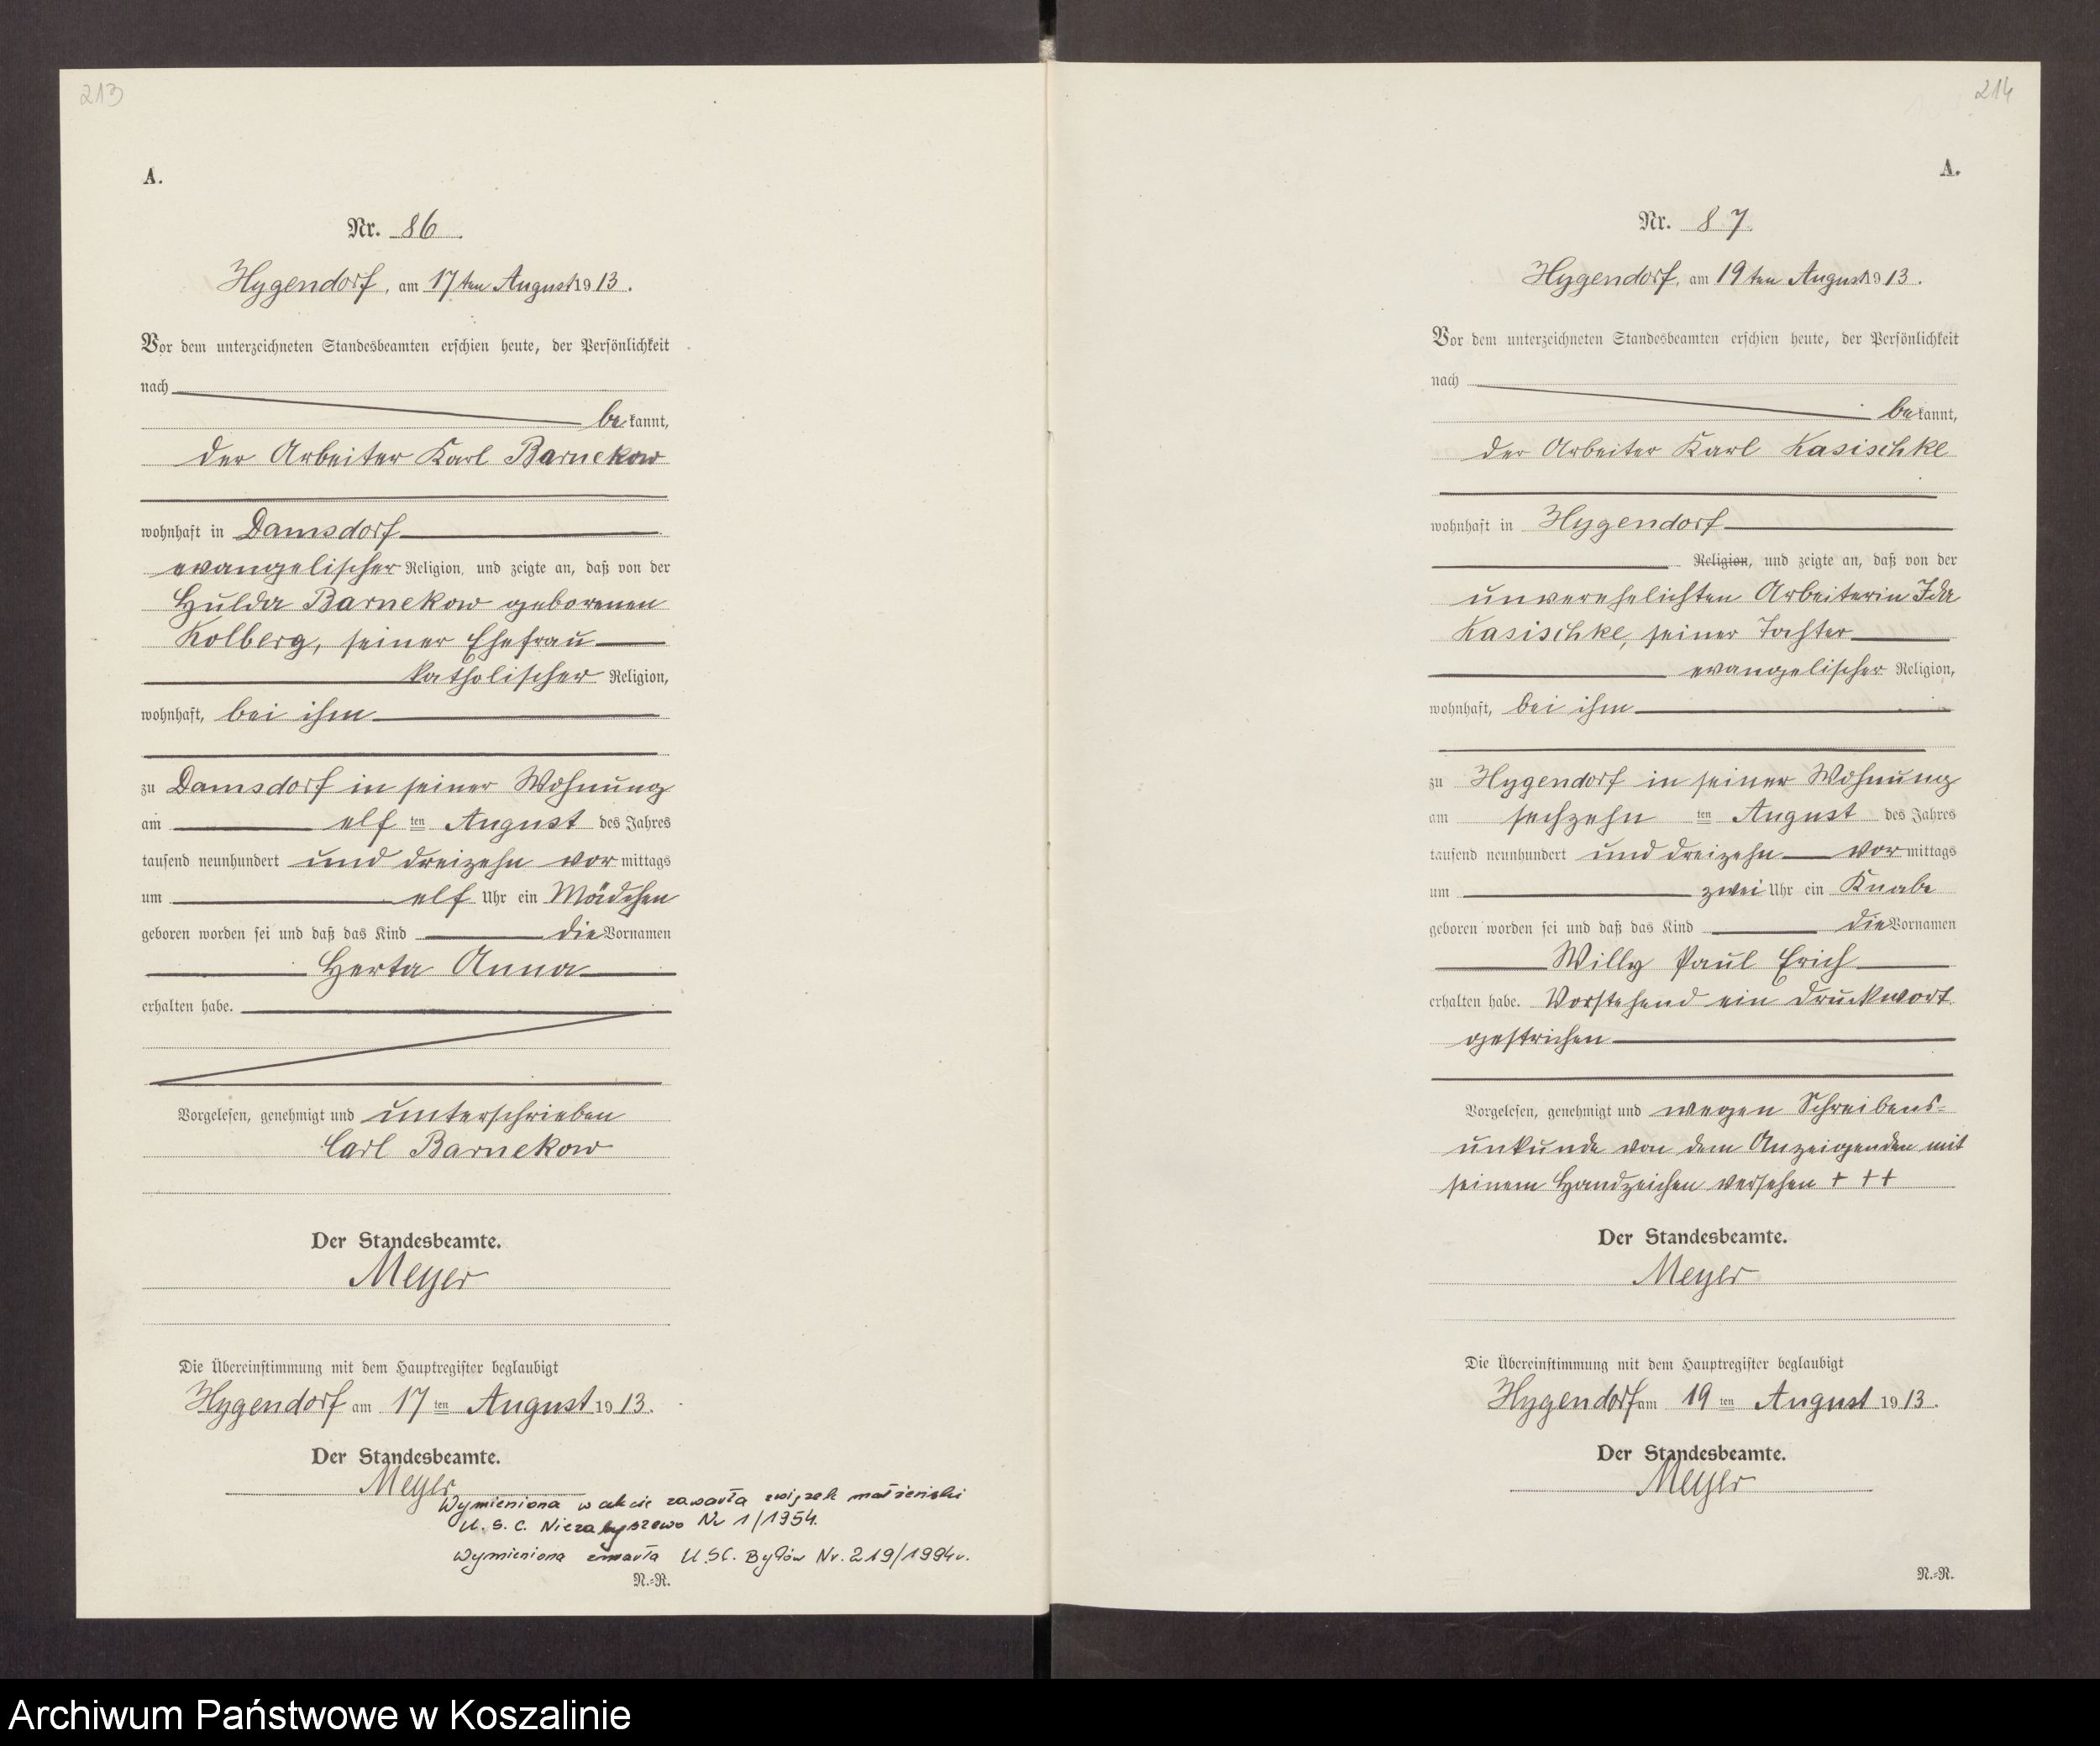 213
A.
Nr. 86.
Hygendorf, am 17ten August 1913.
Vor dem unterzeichneten Standesbeamten erschien heute, der Persönlichkeit
nach
bekannt,
der Arbeiter Karl Barnekow
wohnhaft in Damsdorf
evangelischer Religion, und zeigte an, daß von der
Hulda Barnekow geborenen
Kolberg, seiner Ehefrau
katholischer Religion,
wohnhaft, bei ihm
zu Damsdorf in seiner Wohnung
am elf ten August des Jahres
tausend neunhundert und dreizehn vormittags
um elf Uhr ein Mädchen
geboren worden sei und daß das Kind die Vornamen
Herta Anna
erhalten habe.
Vorgelesen, genehmigt und unterschrieben
Carl Barnekow
Der Standesbeamte.
Meyer
Die Übereinstimmung mit dem Hauptregister beglaubigt
Hygendorf am 17 ten August 1913.
Der Standesbeamte.
Meyer
Wymieniona w akcie zawarła związek małżeński
U.S.C. Niezabyszewo Nr 1/1954.
Wymieniona zmarła U.SC. Bytów Nr. 219/1994r.
N.-R.
214
A.
Nr. 87.
Hygendorf, am 19ten August 1913.
Vor dem unterzeichneten Standesbeamten erschien heute, der Persönlichkeit
nach
bekannt,
der Arbeiter Karl Kasischke
wohnhaft in Hygendorf
Religion, und zeigte an, daß von der
unverehelichten Arbeiterin Ida
Kasischke, seiner Tochter
evangelischer Religion,
wohnhaft, bei ihm
zu Hygendorf in seiner Wohnung
am sechzehn ten August des Jahres
tausend neunhundert und dreizehn vormittags
um zwei Uhr ein Knabe
geboren worden sei und daß das Kind die Vornamen
Willy Paul Erich
erhalten habe. Vorstehend ein Druckwort
gestrichen
Vorgelesen, genehmigt und wegen Schreibens-
unkunde von dem Anzeigenden mit
seinem Handzeichen versehen + + +
Der Standesbeamte.
Meyer
Die Übereinstimmung mit dem Hauptregister beglaubigt
Hygendorf am 19 ten August 1913.
Der Standesbeamte.
Meyer
N.-R.
Archiwum Państwowe w Koszalinie